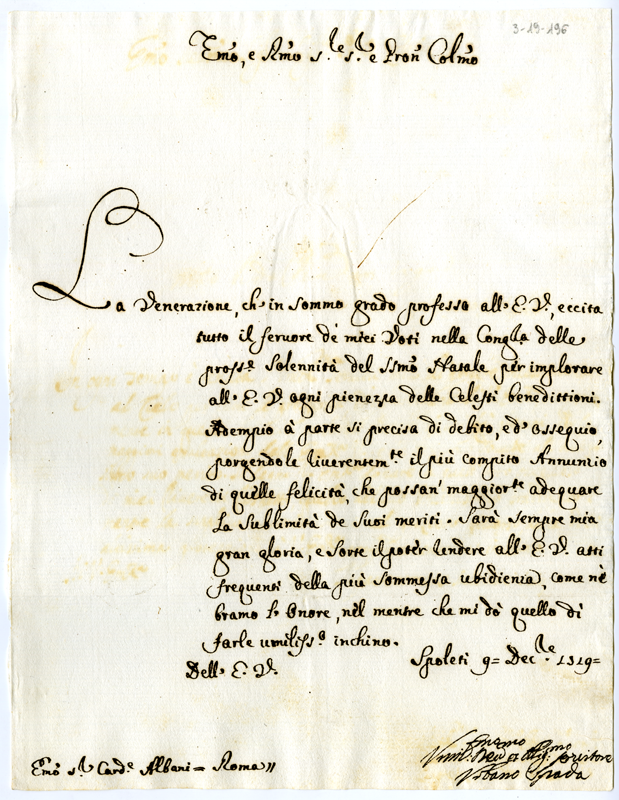 3-19-196
Emo, e Rmo s.re s.r e Pron Colmo
La Venerazione, ch' in sommo grado professo all' E. V., eccita
tutto il feruore de miei Voti nella Congla delle
pross.e Solennità del SSmo Natale per implorare
all' E. V. ogni pienezza delle Celesti benedittioni.
Adempio à parte si precisa di debito, ed' ossequio,
porgendole riuerentem.te il più compito Annunzio
di quelle felicità, che possan' maggior.te adequare
la sublimità de suoi meriti. Sarà sempre mia
gran gloria, e sorte il potèr rendere all' E. V. atti
frequenti della più sommessa ubidienza, come nè
bramo l' Onore, nèl mentre che mi dò quello di
farle umiliss.o inchino.
Dell' E. V. Spoleti 9= Dec.re 1719=
Vmil.mo Deu.mo et Oblig.mo seruitore
Emo s.r Card.e Albani = Roma //
Vrbano